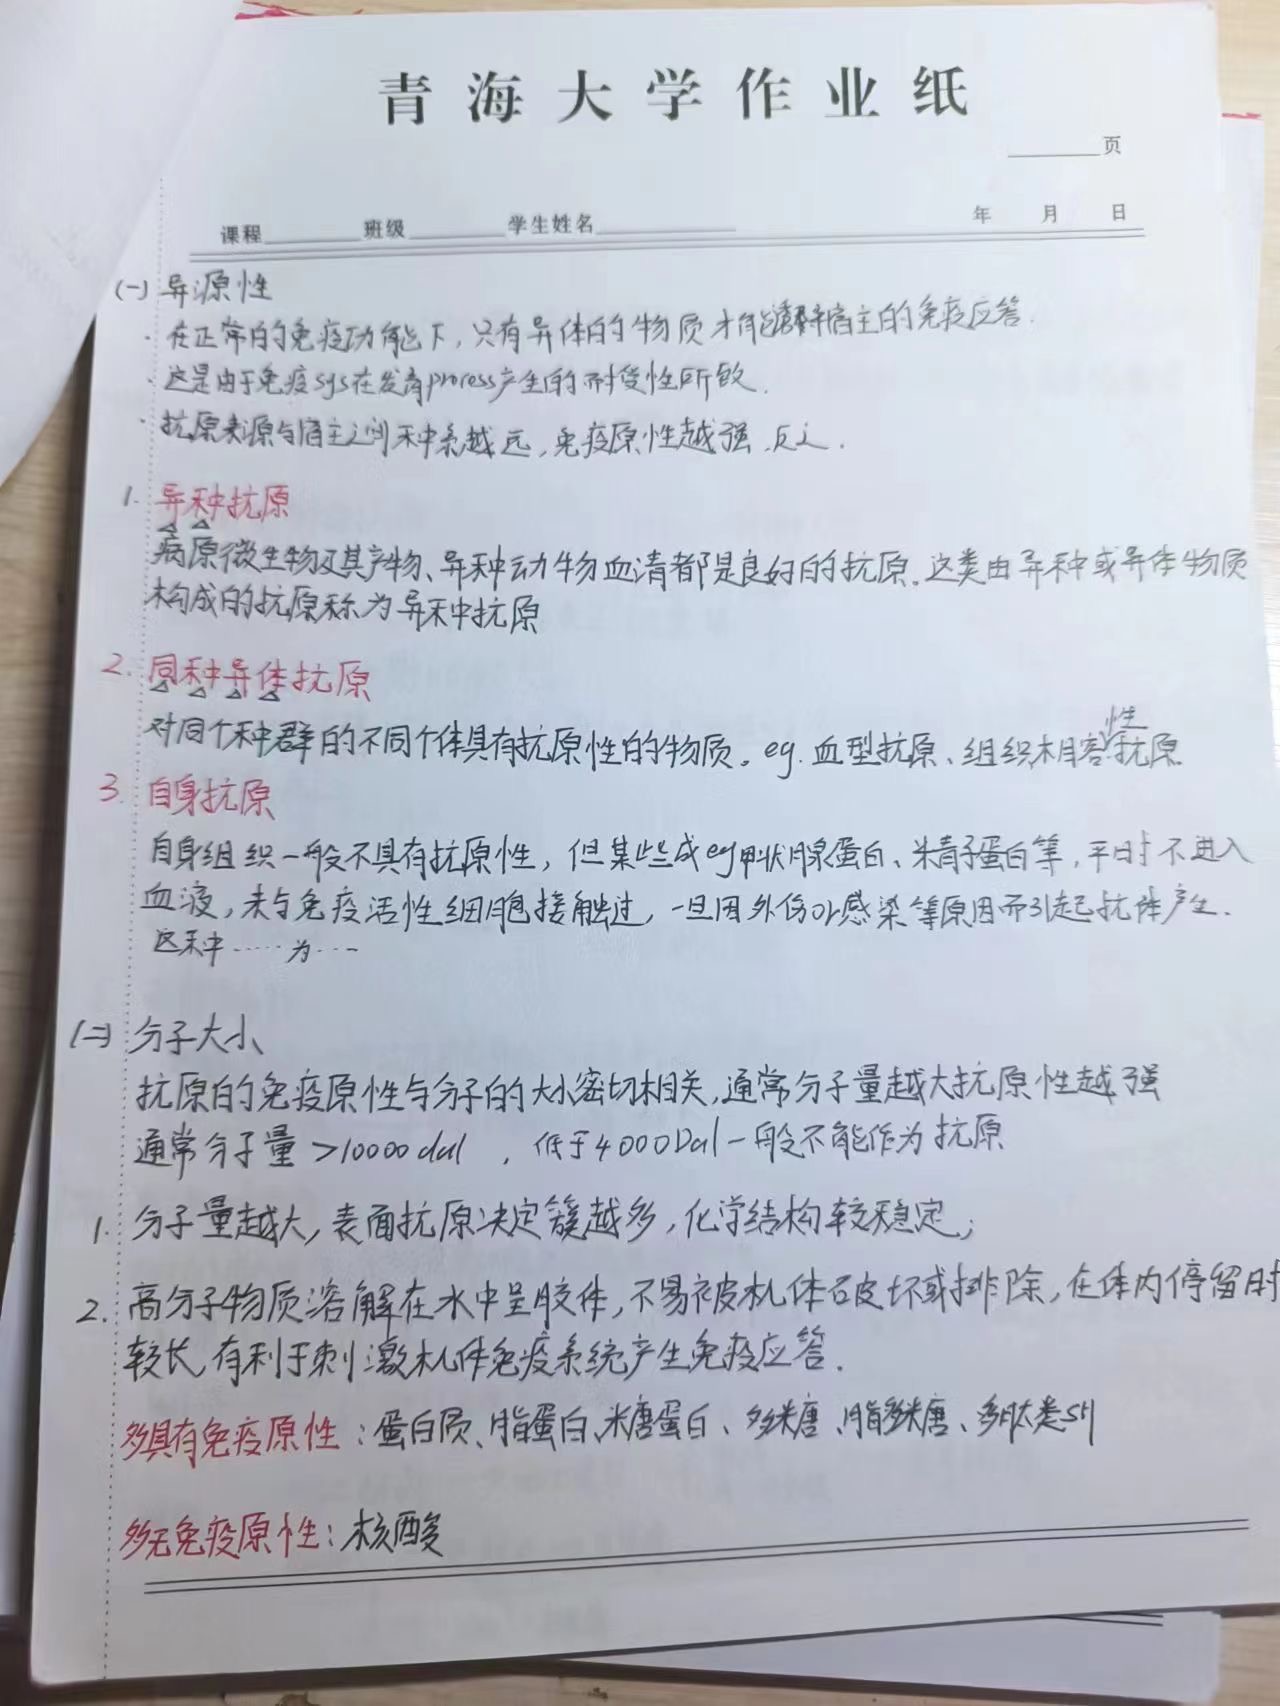 青海大学作业纸
页
课程 班级 学生姓名 年 月 日
(一) 异源性
· 在正常的免疫功能下, 只有异体的物质才能诱导宿主的免疫应答.
· 这是由于免疫sys在发育process产生的耐受性所致.
· 抗原来源与宿主之间种系越远, 免疫原性越强, 反之.
1. 异种抗原
病原微生物及其产物、异种动物血清都是良好的抗原. 这类由异种或异体物质
构成的抗原称为异种抗原
2. 同种异体抗原
对同个种群的不同个体具有抗原性的物质。eg. 血型抗原、组织相容性抗原
3. 自身抗原
自身组织一般不具有抗原性, 但某些成eg甲状腺蛋白、精子蛋白等, 平时不进入
血液, 未与免疫活性细胞接触过, 一旦因外伤or感染等原因而引起抗体产生.
这种……为…
(二) 分子大小
抗原的免疫原性与分子的大小密切相关, 通常分子量越大抗原性越强
通常分子量 >10000dal , 低于4000Dal一般不能作为抗原
1. 分子量越大, 表面抗原决定簇越多, 化学结构较稳定;
2. 高分子物质溶解在水中呈胶体, 不易被机体破坏或排除, 在体内停留时
较长, 有利于刺激机体免疫系统产生免疫应答.
多具有免疫原性: 蛋白质、脂蛋白、糖蛋白、多糖、脂多糖、多肽类
多无免疫原性: 核酸